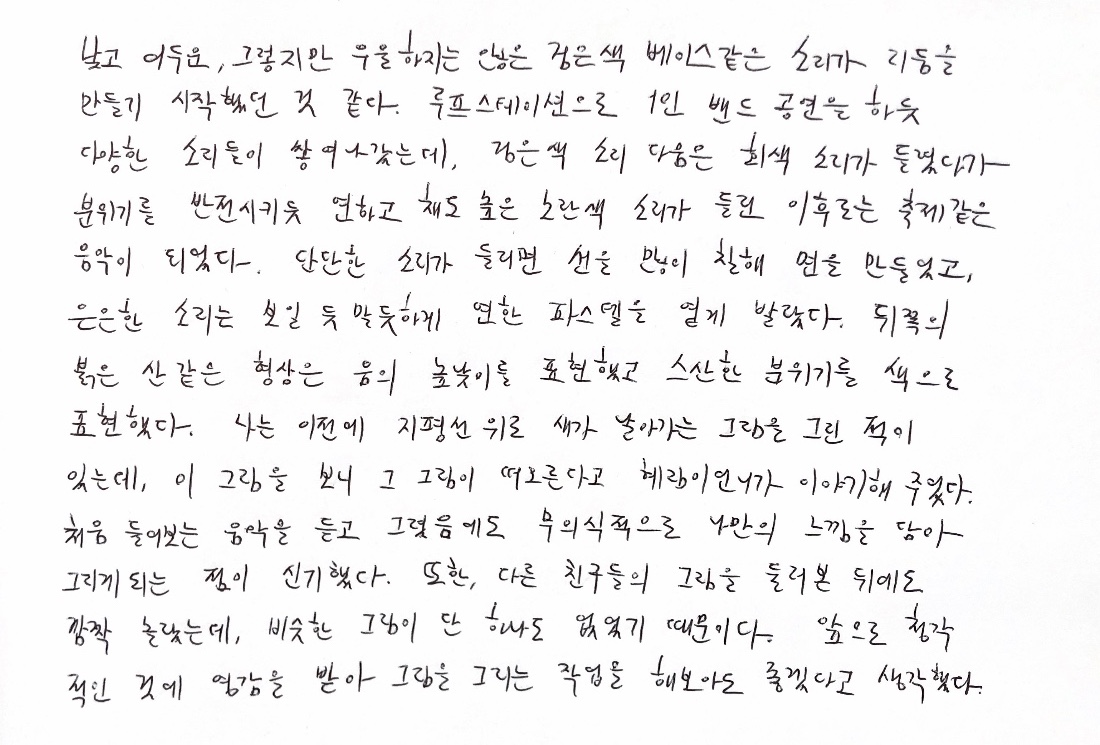 낮고 어두운, 그렇지만 우울하지는 않은 검은색 베이스같은 소리가 리듬을
만들기 시작했던 것 같다. 루프스테이션으로 1인 밴드 공연을 하듯
다양한 소리들이 쌓여나갔는데, 검은색 소리 다음은 회색 소리가 들렸다가
분위기를 반전시키듯 연하고 채도 높은 노란색 소리가 들린 이후로는 축제같은
음악이 되었다. 단단한 소리가 들리면 선을 많이 칠해 면을 만들었고,
은은한 소리는 보일 듯 말듯하게 연한 파스텔을 옅게 발랐다. 뒤쪽의
붉은 산 같은 형상은 음의 높낮이를 표현했고 스산한 분위기를 색으로
표현했다. 나는 이전에 지평선 위로 새가 날아가는 그림을 그린 적이
있는데, 이 그림을 보니 그 그림이 떠오른다고 혜람이언니가 이야기해 주었다.
처음 들어보는 음악을 듣고 그렸음에도 무의식적으로 나만의 느낌을 담아
그리게 되는 점이 신기했다. 또한, 다른 친구들의 그림을 둘러본 뒤에도
깜짝 놀랐는데, 비슷한 그림이 단 하나도 없었기 때문이다. 앞으로 청각
적인 것에 영감을 받아 그림을 그리는 작업을 해보아도 좋겠다고 생각했다.